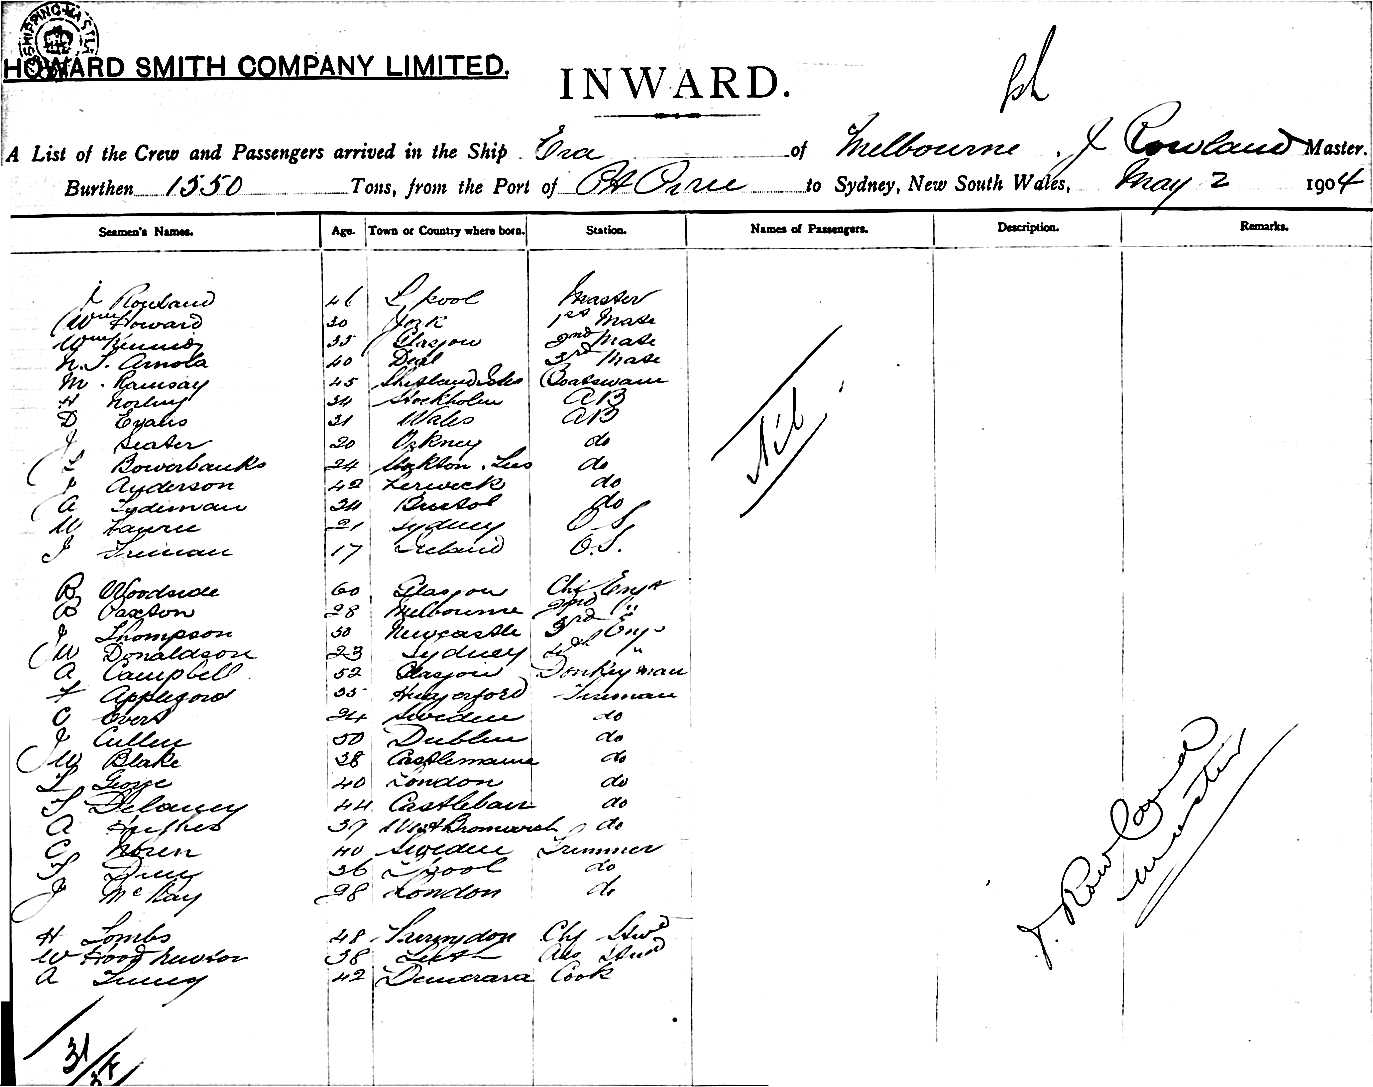 SHIPPING MASTE
HOWARD SMITH COMPANY LIMITED.
INWARD.
A List of the Crew and Passengers arrived in the Ship Era of Melbourne, J Rowland Master.
Burthen 1550 Tons, from the Port of Pt Pirie to Sydney, New South Wales, May 2 1904
Seamen's Names. Age. Town or Country where born. Station. Names of Passengers. Description. Remarks.
J Rowland 46 L'pool Master
Wm Howard 30 York 1st Mate
Wm Kennedy 35 Glasgow 2nd Mate
N. S. Arnola 40 Deal 3rd Mate
M. Ramsay 45 Shetland Isles Boatswain
H 34 Stockholm AB
D Evans 31 Wales AB
J Seater 20 Orkney do
Bowerbanks 24 Stockton Tees do
Anderson 42 Lerwick do
A Tydeman 34 Bristol do
W Laurie 21 Sydney O S
J 17 Ireland O.S.
Nil
R Woodside 60 Glasgow Chf Engr
B Paxton 28 Melbourne 2nd "
J Thompson 50 Newcastle 3rd Eng
W Donaldson 23 Sydney 4th "
A Campbell 52 Glasgow Donkeyman
F Appleford 35 Hungerford Fireman
C Evert 24 Sweden do
J Cullen 50 Dublin do
W Blake 38 Castlemaine do
L George 40 London do
T Delaney 44 Castlebar do
A Hughes 39 West Bromwich do
C Noren 40 Sweden Trimmer
T 36 L'pool do
J McKay 28 London do
H Lombs 48 Chf Stwd
W Hood Newton 38 Leith Ass Stwd
A 42 Demerara Cook
J. Rowland
Master
31